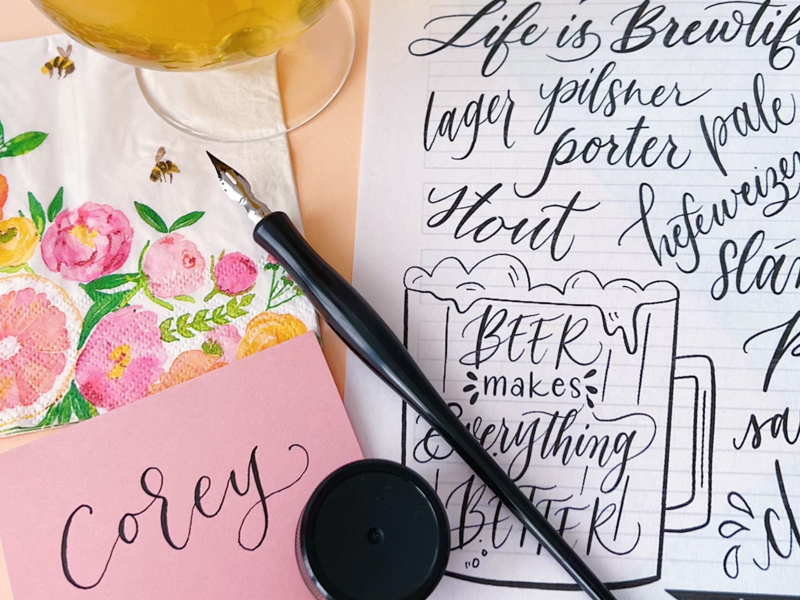 Life is Brewtif
lager pilsner pale
porter
Stout hefeweizen
slá
BEER
makes
Everything
BETTER
sa
Corey